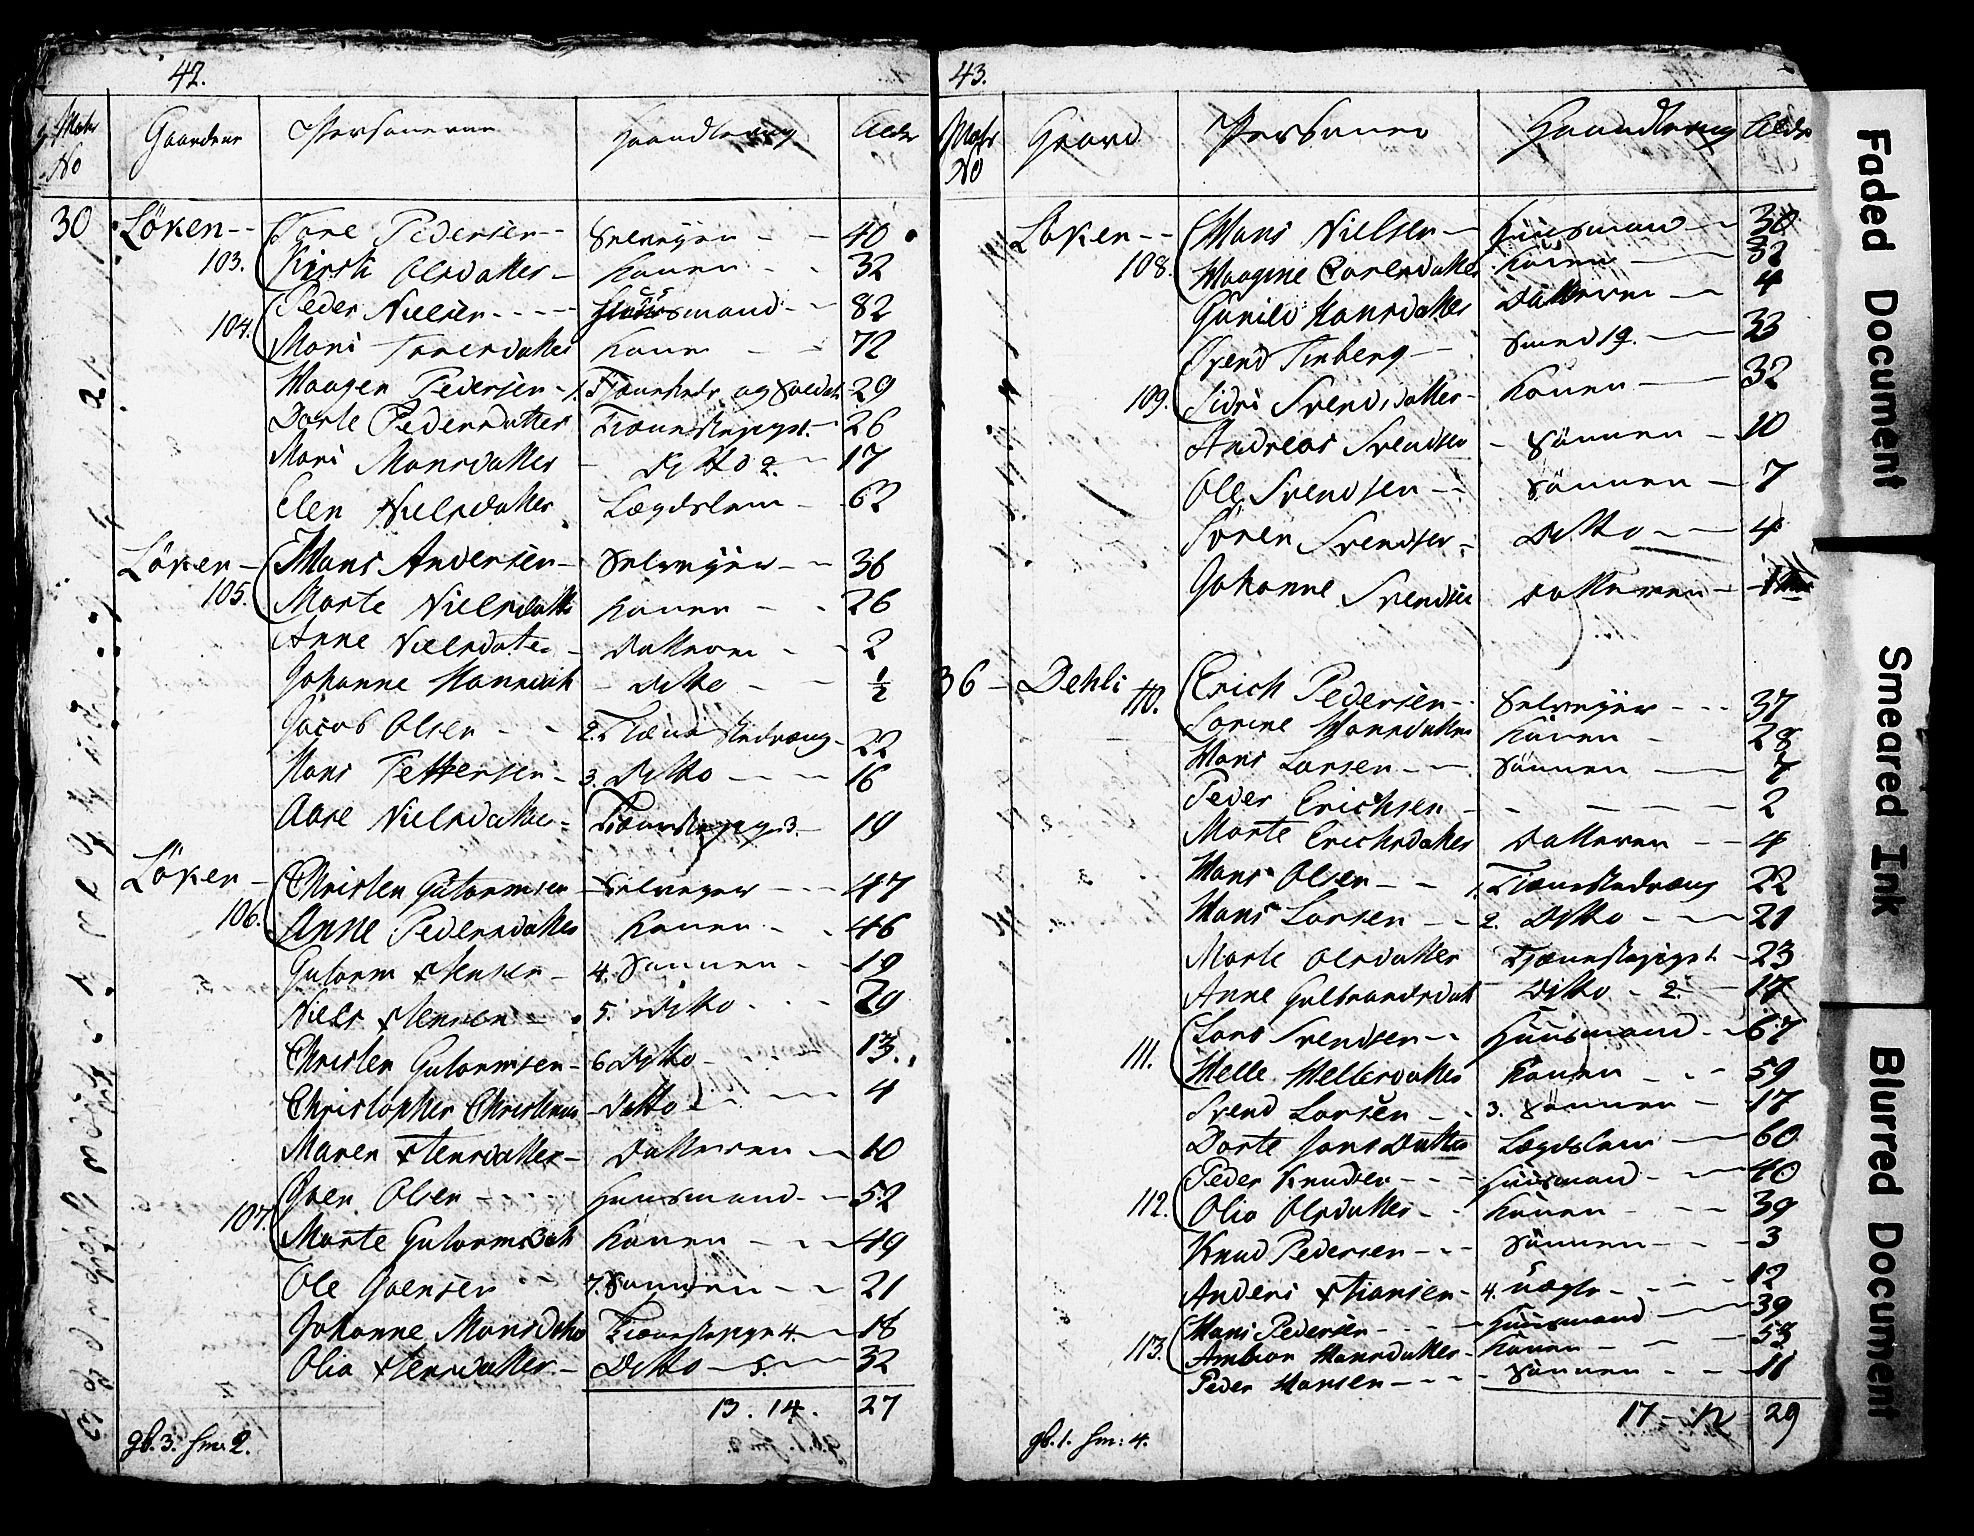 42.
Matr No Gaardene Personerne Haandtering Alder
30 Löken -- Tore Pedersen -- Selveyer -- 40
103. Kirsti Olsdatter - Konen - - 32
Peder Nielsen ---- Huusmand -- 82
104. Mari Toresdatter Konen - - 72
Haagen Pedersen - 1. Tjenestedr. og Soldat 29
Dorte Pedersdatter Tienestepige 1. - 26
Mari Hansdatter - Ditto 2. - 17
Elen Nielsdatter Lægdslem - 62
Löken - Hans Andersen - Selveyer -- 36
105. Marte Nielsdatter Konen - - 26
Anne Nielsdater - Datteren - - 2
Johanne Hansdat - Ditto - - 1/2
Jacob Olsen - - 2. Tienestedræng - 22
Hans Pettersen - 3. Ditto --- 16
Aase Nielsdatter - Tienestepige 3. - 19
Löken - Christen Gutormsen - Selveyer --- 47
106. Anne Pedersdatter Konen - - 46
Gutorm Xstensen - 4. Sönnen - - 19
Niels Xstensen - 5. Ditto - - - 20
Christen Gutormsen - 6 Ditto - 13.
Christopher Christensen - Ditto - - - 4
Maren Xstensdatter - Datteren - - 10
Goen Olsen Huusmand -- 52
107. Marte Gutormsdat Konen - - - 49
Ole Goensen 7. Sönnen - - 21
Johanne Hansdatter Tienestepige 4. - 18
Olia Xstensdatter - Ditto - 5. - 32
13. 14. 27
gb. 3. hm: 2.
43.
Matr No Gaard Personer Haandtering Alder
Löken -- Hans Nielsen - Huusmand -- 30
108. Konen - 32
Gunild Hansdatter Datteren - 4
Svend - Smed 19. - 33
109. Sidri Svendsdatter - Konen - 32
Andreas Svendsen - Sönnen - 10
Ole Svendsen -- Sönnen - 7
Sören Svendsen - Ditto -- 4
Johanne Svendsd Datteren - 1
36 - Dehli 110. Erich Pedersen -- Selveyer --- 37
Lorine Hansdatter Konen - 28
Hans Larsen --- Sönnen - 7
Peder Erichsen - - - - - 2
Marte Erichsdatter Datteren -- 4
Hans Olsen -- 1. Tienestedræng 22
Hans Larsen -- 2. Ditto --- 21
Marte Olsdatter Tjenestepige 1. - 23
Anne Gulbrandsdat Ditto - 2. - 17
Lars Svendsen -- Huusmand -- 67
111. Helle Hellesdatter Konen - - - 59
Svend Larsen -- 3. Sönnen - - 17
Dorte Jonsdatter Lægdslem - 60
Peder Knudsen --- Huusmand - - 40
112. Olia Olsdatter - - Konen - - - 39
Knud Pedersen --- Sönnen - - - 3
Anders Xtiansen - 4. - - - 12
Hans Pedersen ---- Huusmand - 39
113. Hansdatter - Konen - - 53
Peder Hansen ---- Sönnen - - 11
17 - 12 29
gb. 1. hm: 4.
Faded Document
Smeared Ink
Blurred Document